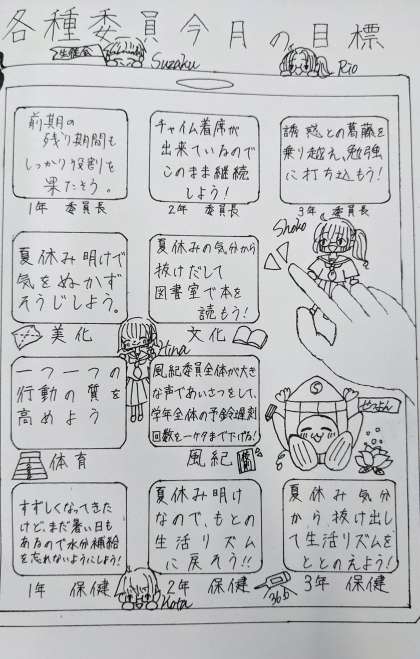 各種委員今月の目標
生徒会
Suzaku
Rio
前期の
残り期間も
しっかり役割を
果たそう。
1年 委員長
チャイム着席が
出来ているので
このまま継続
しよう！
2年 委員長
誘惑との葛藤を
乗り越え、勉強
に打ち込もう！
3年 委員長
Shoko
夏休み明けで
気をぬかず
そうじしよう。
美化
夏休みの気分から
抜けだして
図書室で本を
読もう！
文化
Hina
一つ一つの
行動の質を
高めよう
体育
風紀委員全体が大き
な声であいさつをして、
学年全体の予鈴遅刻
回数を一ケタまで下げる！
風紀
5
すずしくなってきた
けど、まだ暑い日も
あるので水分補給
を忘れないようにしよう！
1年 保健
夏休み明け
なので、もとの
生活リズム
に戻そう！！
2年 保健
夏休み気分
から、抜け出し
て生活リズムを
ととのえよう！
3年 保健
Kota
36.0